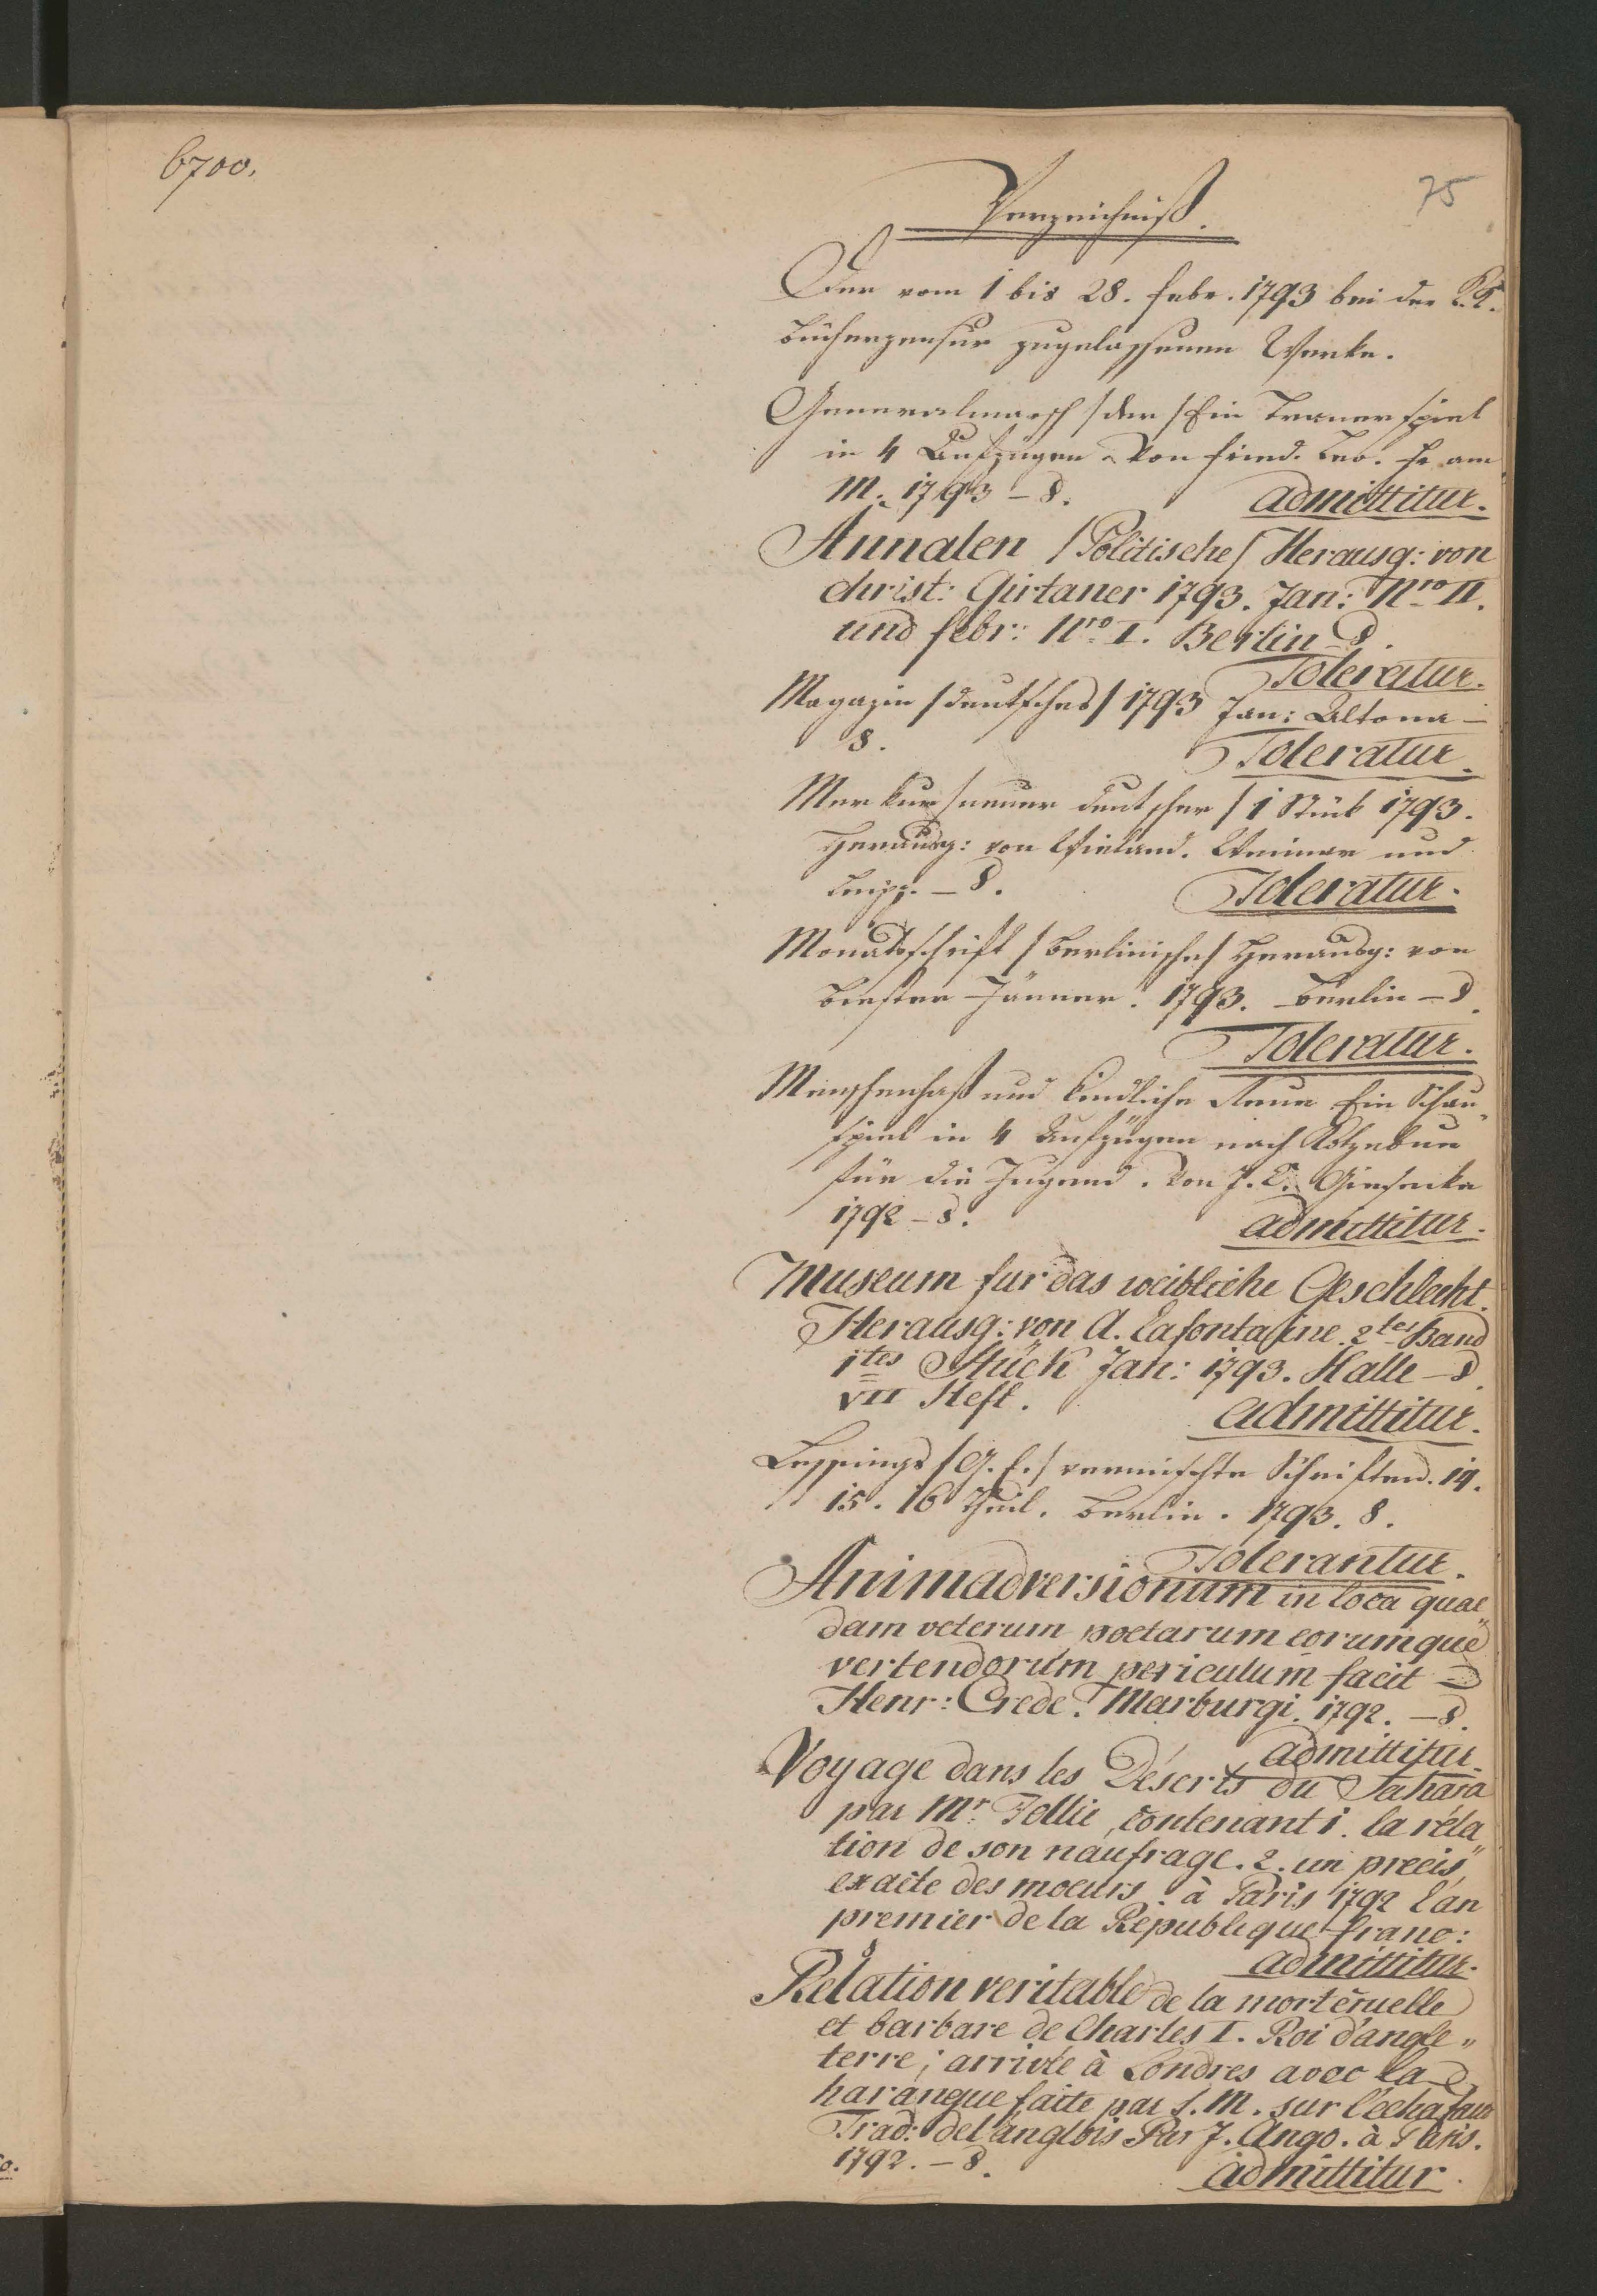 6700.
75
Verzeichniß.
Der vom 1 bis 28. febr. 1793 bei der K.K.
Bücherzensur zugelassenen Werke.
Generalmarsch /der/ Ein Trauerspiel
in 4 Aufzügen. Von fried. am
M. 1793 – 8. admittitur.
Annalen /Politische/ Herausg: von
christ: Girtaner 1793. Jan: Nro II.
und febr: Nro I. Berlin 8.
Toleratur.
Magazin /deutsches/ 1793 Jan: Altona –
8. Toleratur.
Merkur /neuer deutscher/ 1 Stück 1793.
Herausg: von Wieland. Weimar und
Leipz. – 8. Toleratur.
Monatsschrift /Berlinische/ Herausg: von
Biester Jänner. 1793. Berlin – 8.
Toleratur.
Menschenhaß und kindliche Reue Ein Schau„
spiel in 4 Aufzügen nach Kotzebue
für die Jugend. Von J. C. Giesecke
1792 – 8. admittitur.
Museum fur das weibliche Geschlecht.
Herausg: von A. Lafontaine. 2tes Band
1tes Stück Jan: 1793. Halle – 8.
VII Heft. admittitur.
Lessings /G. E./ vermischte Schriften. 14.
15. 16 Theil. Berlin. 1793. 8.
Tolerantur.
Animadversionum in loca quae„
dam veterum poetarum eorumque
vertendorum periculum facit –
Henr: Crede. Marburgi. 1792. – 8.
admittitur.
Voyage dans les Déserts du Sahara
par Mr. Follie, contenant 1. la réla„
tion de son naufrage. 2. un precis
exacte des moeurs. à Paris 1792 l'an
premier de la Republique franc:
admittitur.
Relation veritable de la mort cruelle
et barbare de Charles I. Roi d'angle„
terre; arrivée à Londres avec la
harangue faite par S. M. sur l'echafaud
Trad: de l'anglois Par J. Ango. à Paris.
1792. – 8. admittitur.